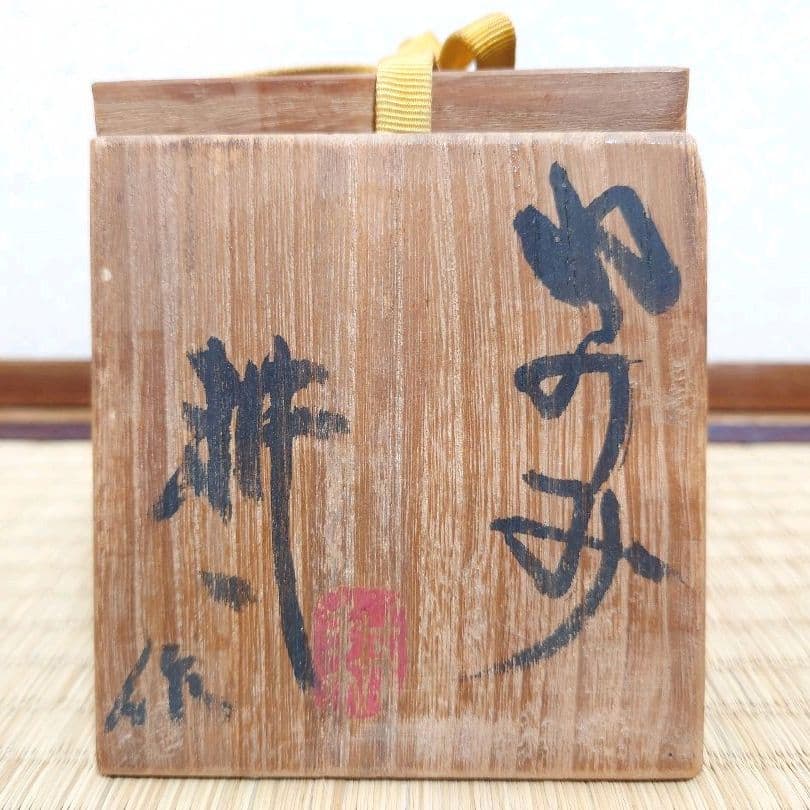 ゆのみ
耕 作